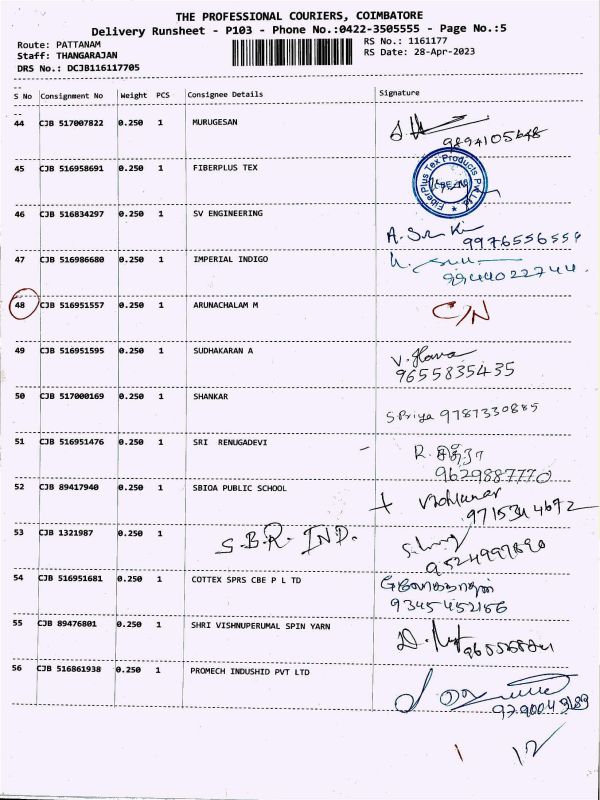 THE PROFESSIONAL COURIERS, COIMBATORE
Delivery Runsheet - P103 - Phone No.:0422-3505555 - Page No.:5
Route: PATTANAM
RS No.: 1161177
Staff: THANGARAJAN
RS Date: 28-Apr-2023
DRS No.: DCJB116117705
S No Consignment No Weight PCS Consignee Details Signature
44 CJB 517007822 0.250 1 MURUGESAN
9894105648
45 CJB 516958691 0.250 1 FIBERPLUS TEX
Fiberplus Tex Products Pvt Ltd
46 CJB 516834297 0.250 1 SV ENGINEERING
9976556556
47 CJB 516986680 0.250 1 IMPERIAL INDIGO
9944022744
48 CJB 516951557 0.250 1 ARUNACHALAM M C/N
49 CJB 516951595 0.250 1 SUDHAKARAN A
9655835435
50 CJB 517000169 0.250 1 SHANKAR
S Priya 9787330885
51 CJB 516951476 0.250 1 SRI RENUGADEVI
9629887770
52 CJB 89417940 0.250 1 SBIOA PUBLIC SCHOOL
53 CJB 1321987 0.250 1 S.B.R. IND.
54 CJB 516951681 0.250 1 COTTEX SPRS CBE P L TD
9345452156
55 CJB 89476801 0.250 1 SHRI VISHNUPERUMAL SPIN YARN
56 CJB 516861938 0.250 1 PROMECH INDUSHID PVT LTD